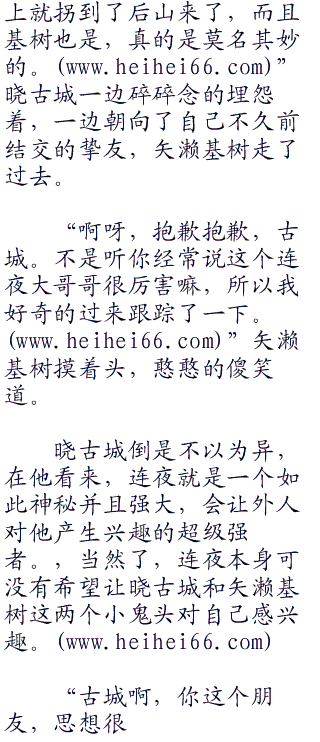 上就拐到了后山来了，而且
基树也是，真的是莫名其妙
的。(www.heihei66.com)”
晓古城一边碎碎念的埋怨
着，一边朝向了自己不久前
结交的挚友，矢濑基树走了
过去。
“啊呀，抱歉抱歉，古
城。不是听你经常说这个连
夜大哥哥很厉害嘛，所以我
好奇的过来跟踪了一下。
(www.heihei66.com)”矢濑
基树摸着头，憨憨的傻笑
道。
晓古城倒是不以为异，
在他看来，连夜就是一个如
此神秘并且强大，会让外人
对他产生兴趣的超级强
者。，当然了，连夜本身可
没有希望让晓古城和矢濑基
树这两个小鬼头对自己感兴
趣。(www.heihei66.com)
“古城啊，你这个朋
友，思想很